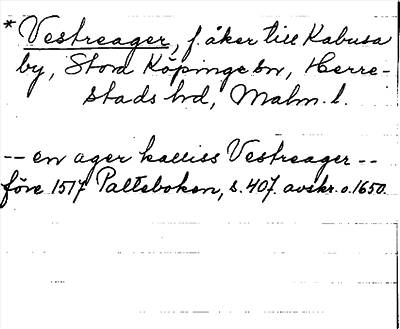 * Vestreager, f åker till Kabusa
by, Stora Köpinge sn, Herre-
stads hd, Malm. l.
-- en ager kalliss Vestreager --
före 1517 Paltebokon, s. 407. avskr. o. 1650.